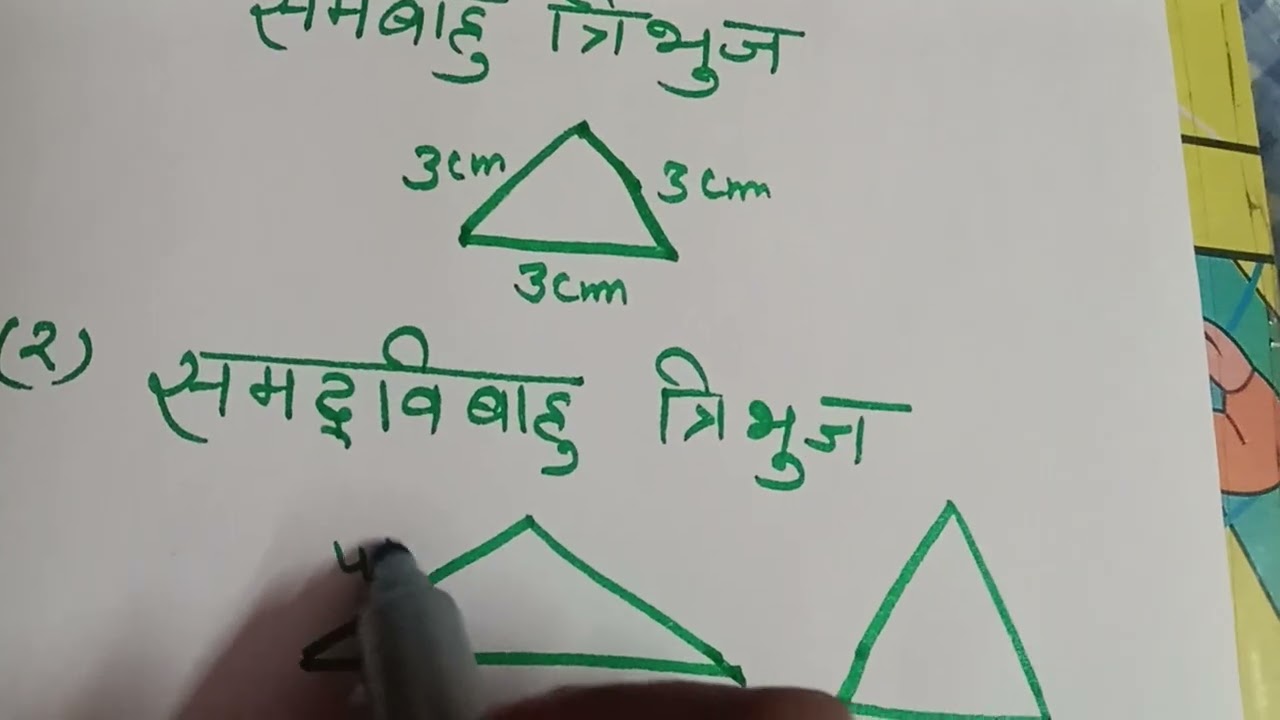 समबाहु त्रिभुज
3cm
3cm
3cm
(२) समद्विबाहु त्रिभुज